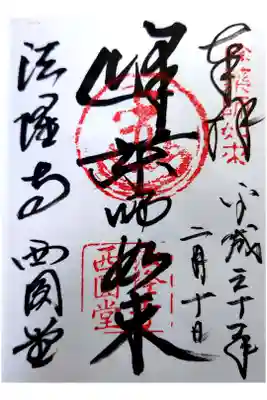 奉拝
平成三十年
二月十日
峰薬師如来
法隆寺
西円堂
西円堂